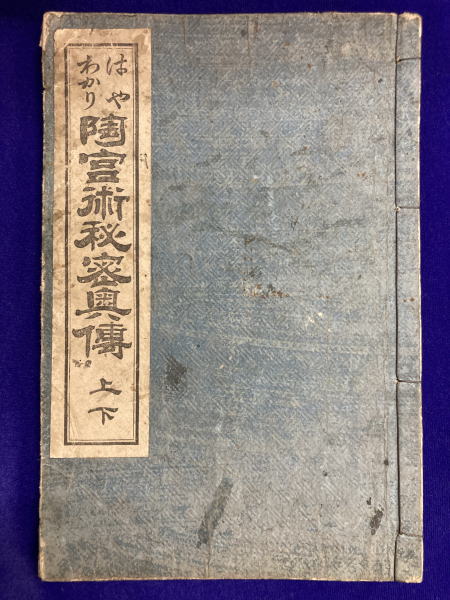 はや
わかり
陶宮術秘密奥傳
上下